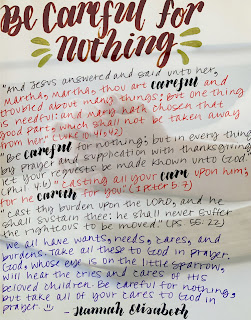 Be Careful for
nothing
"And Jesus answered and said unto her,
Martha, Martha, thou art careful and
troubled about many things: But one thing
is needful: and Mary hath chosen that
good part, which shall not be taken away
from her." (Luke 10:41,42)
"Be careful for nothing; but in every thing
by prayer and supplication with thanksgiving
let your requests be made known unto God."
(Phil 4:6) "Casting all your care upon him;
for he careth for you." (1 Peter 5:7)
"Cast thy burden upon the LORD, and he
shall sustain thee: he shall never suffer
the righteous to be moved." (Ps. 55:22)
We all have wants, needs, cares, and
burdens. Take all these to God in prayer.
God, whose eye is on the little sparrow,
will hear the cries and cares of His
beloved children. Be careful for nothing,
but take all of your cares to God in
prayer.
- Hannah Elisabeth